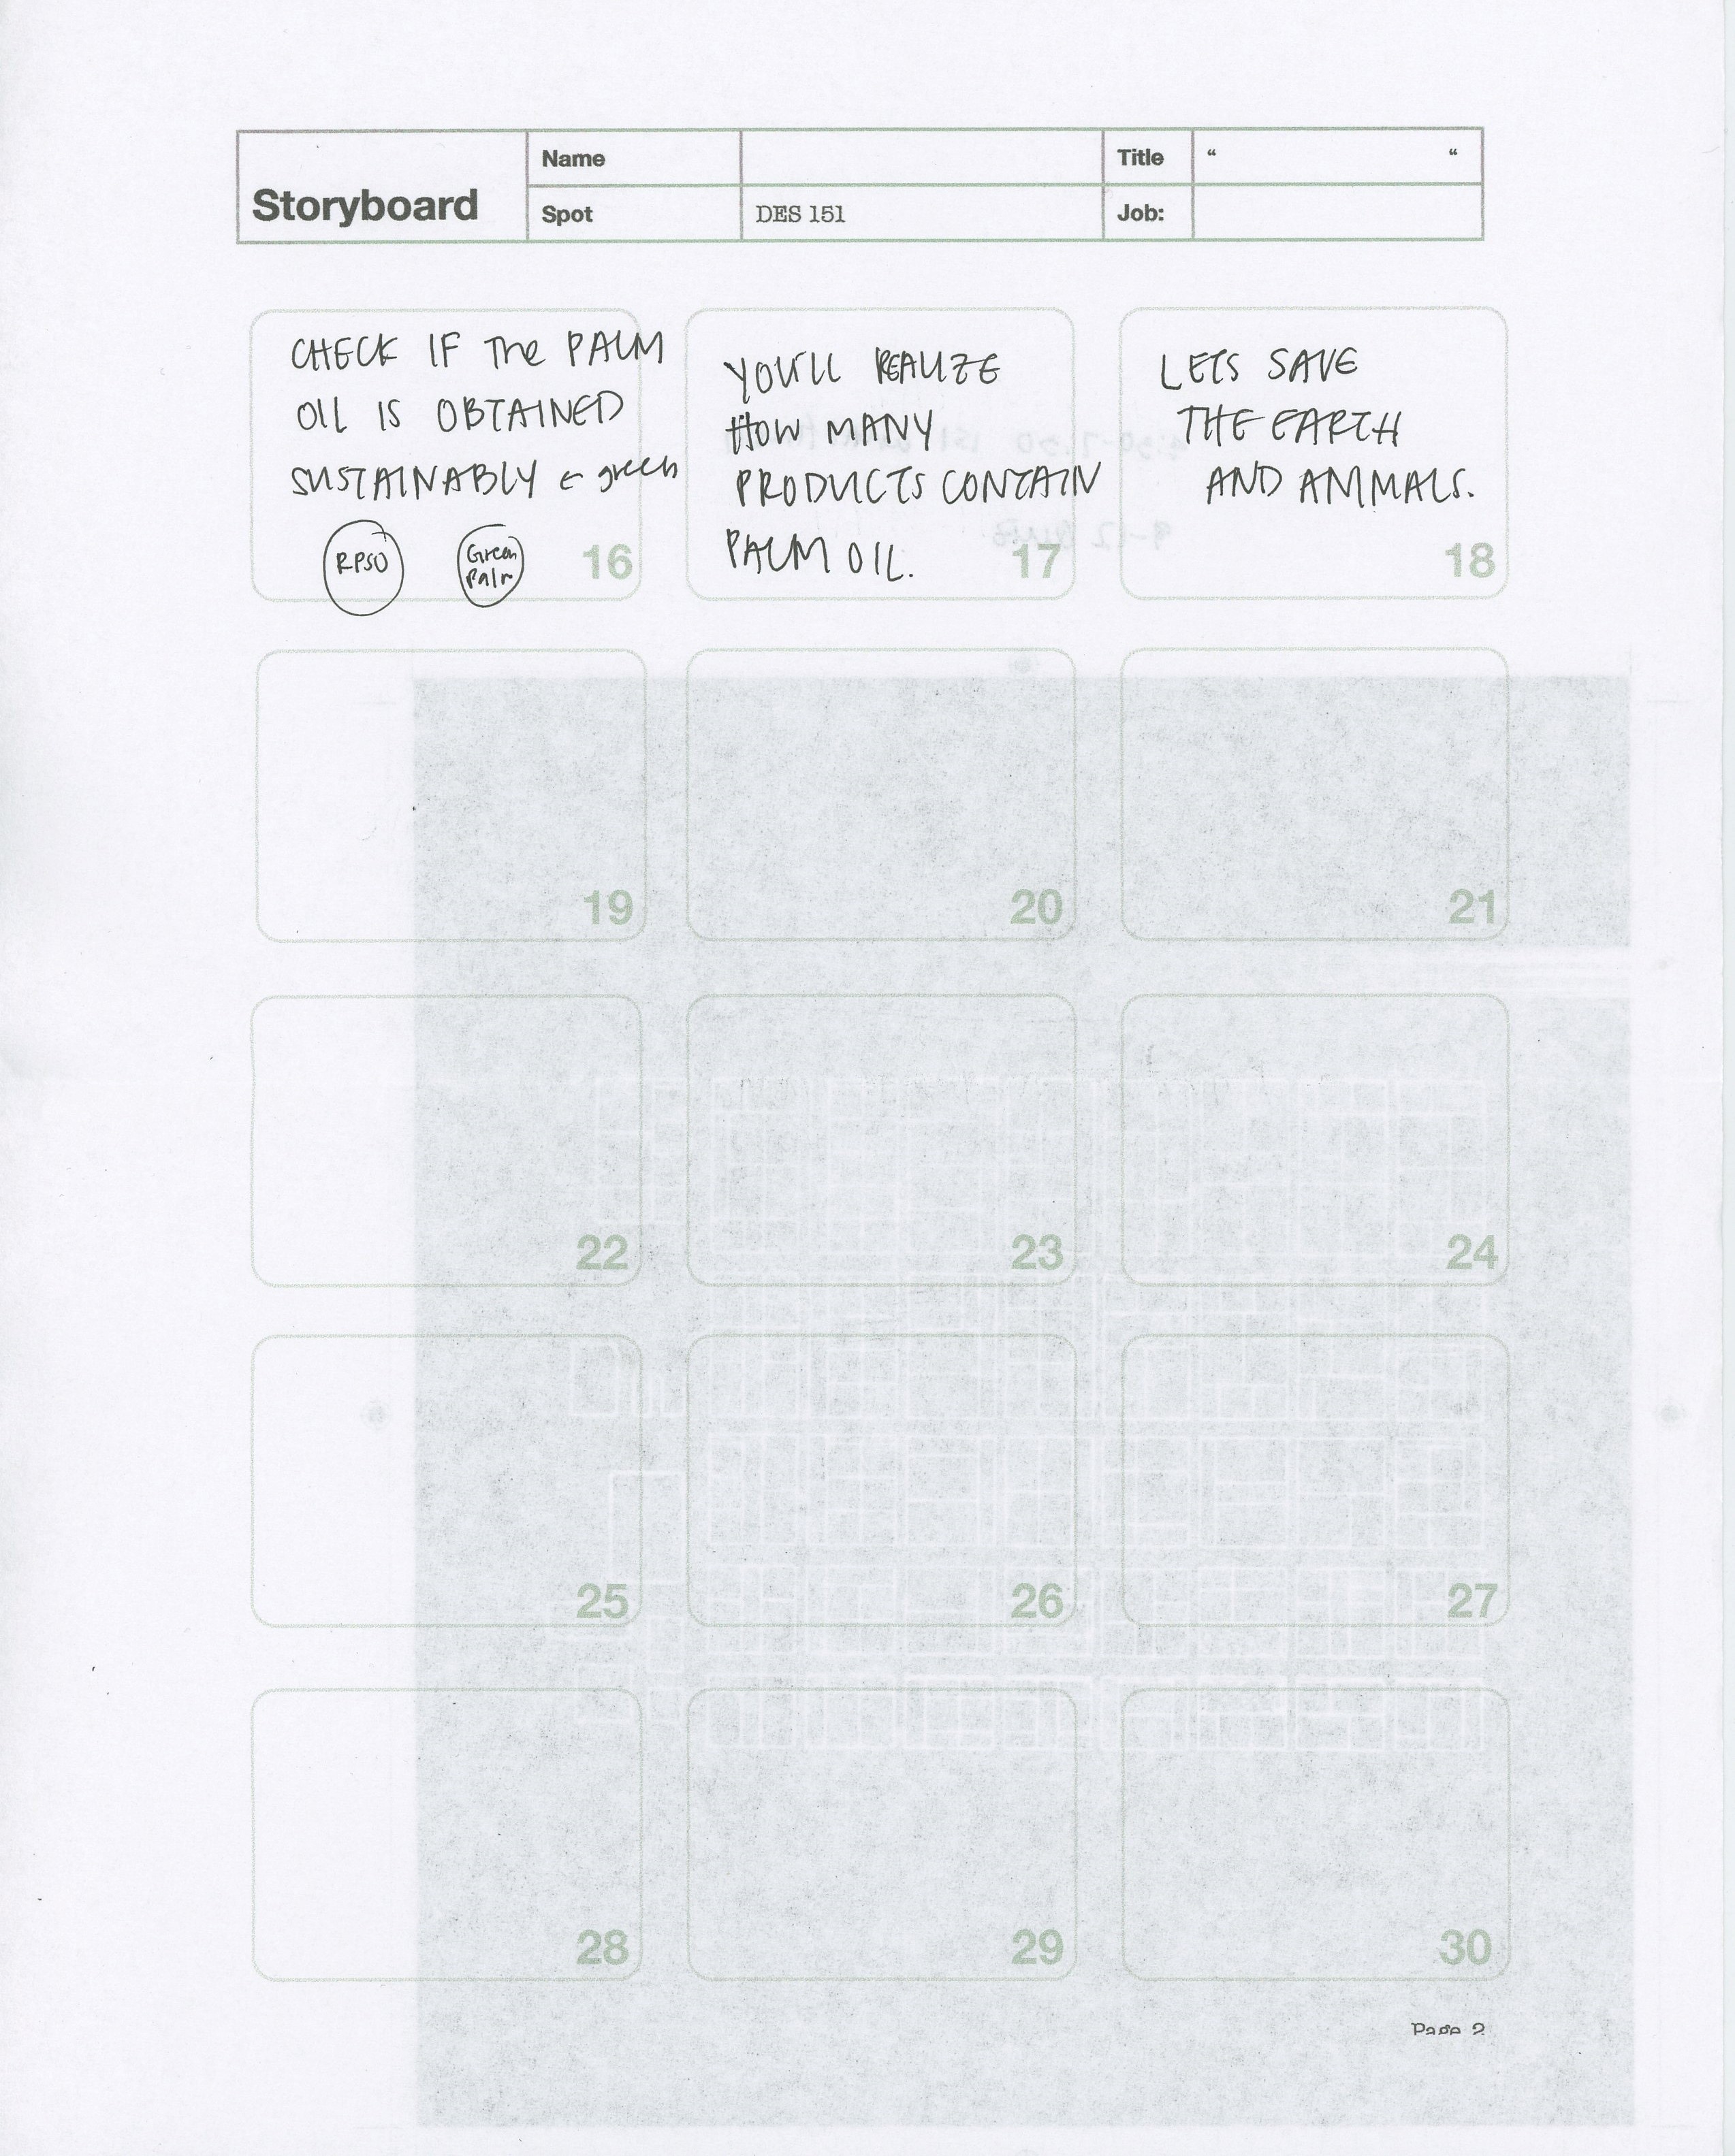 Storyboard
Name
Title
“ “
Spot
DES 151
Job:
CHECK IF The PALM
OIL IS OBTAINED
SUSTAINABLY ← green
RPSO
Green
Palm
16
YOU'LL REALIZE
HOW MANY
PRODUCTS CONTAIN
PALM OIL.
17
LETS SAVE
THE EARTH
AND ANIMALS.
18
19
20
21
22
23
24
25
26
27
28
29
30
Page 2